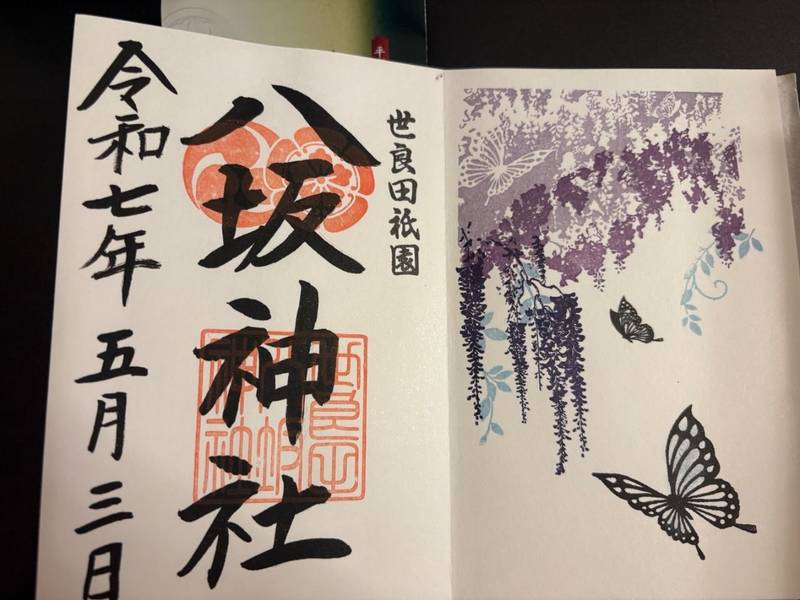 平
世良田祇園
八坂神社
令和七年 五月三日